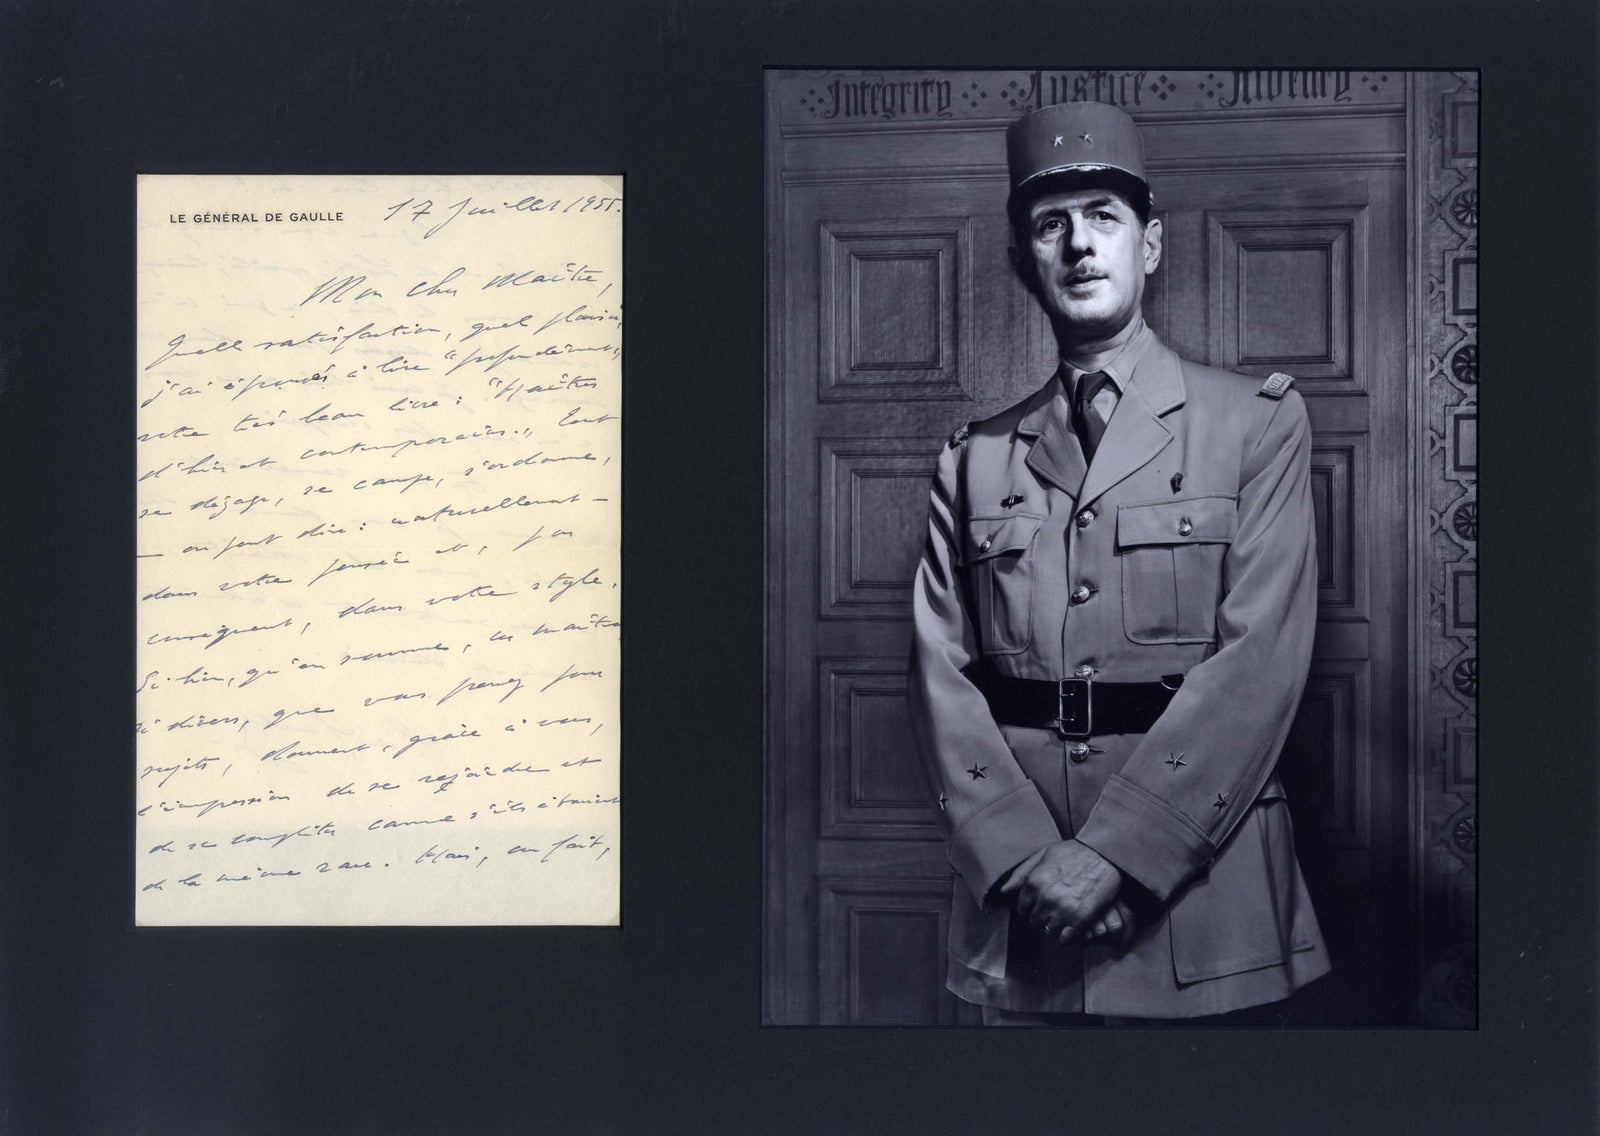 LE GÉNÉRAL DE GAULLE
17 Juillet 1955.
Mon cher Maître,
Quelle satisfaction, quel plaisir,
j'ai éprouvés à lire "profondément"
votre très beau livre : "Maîtres
d'hier et contemporains". Tout
se dégage, se campe, s'ordonne,
— on peut dire : naturellement —
dans votre pensée et, par
conséquent, dans votre style.
Si bien, qu'en somme, ces maîtres
si divers, que vous prenez pour
sujets, donnent, grâce à vous,
l'impression de se rejoindre et
de se compléter comme s'ils étaient
de la même race. Mais, en fait,
Integrity Justice Fidelity